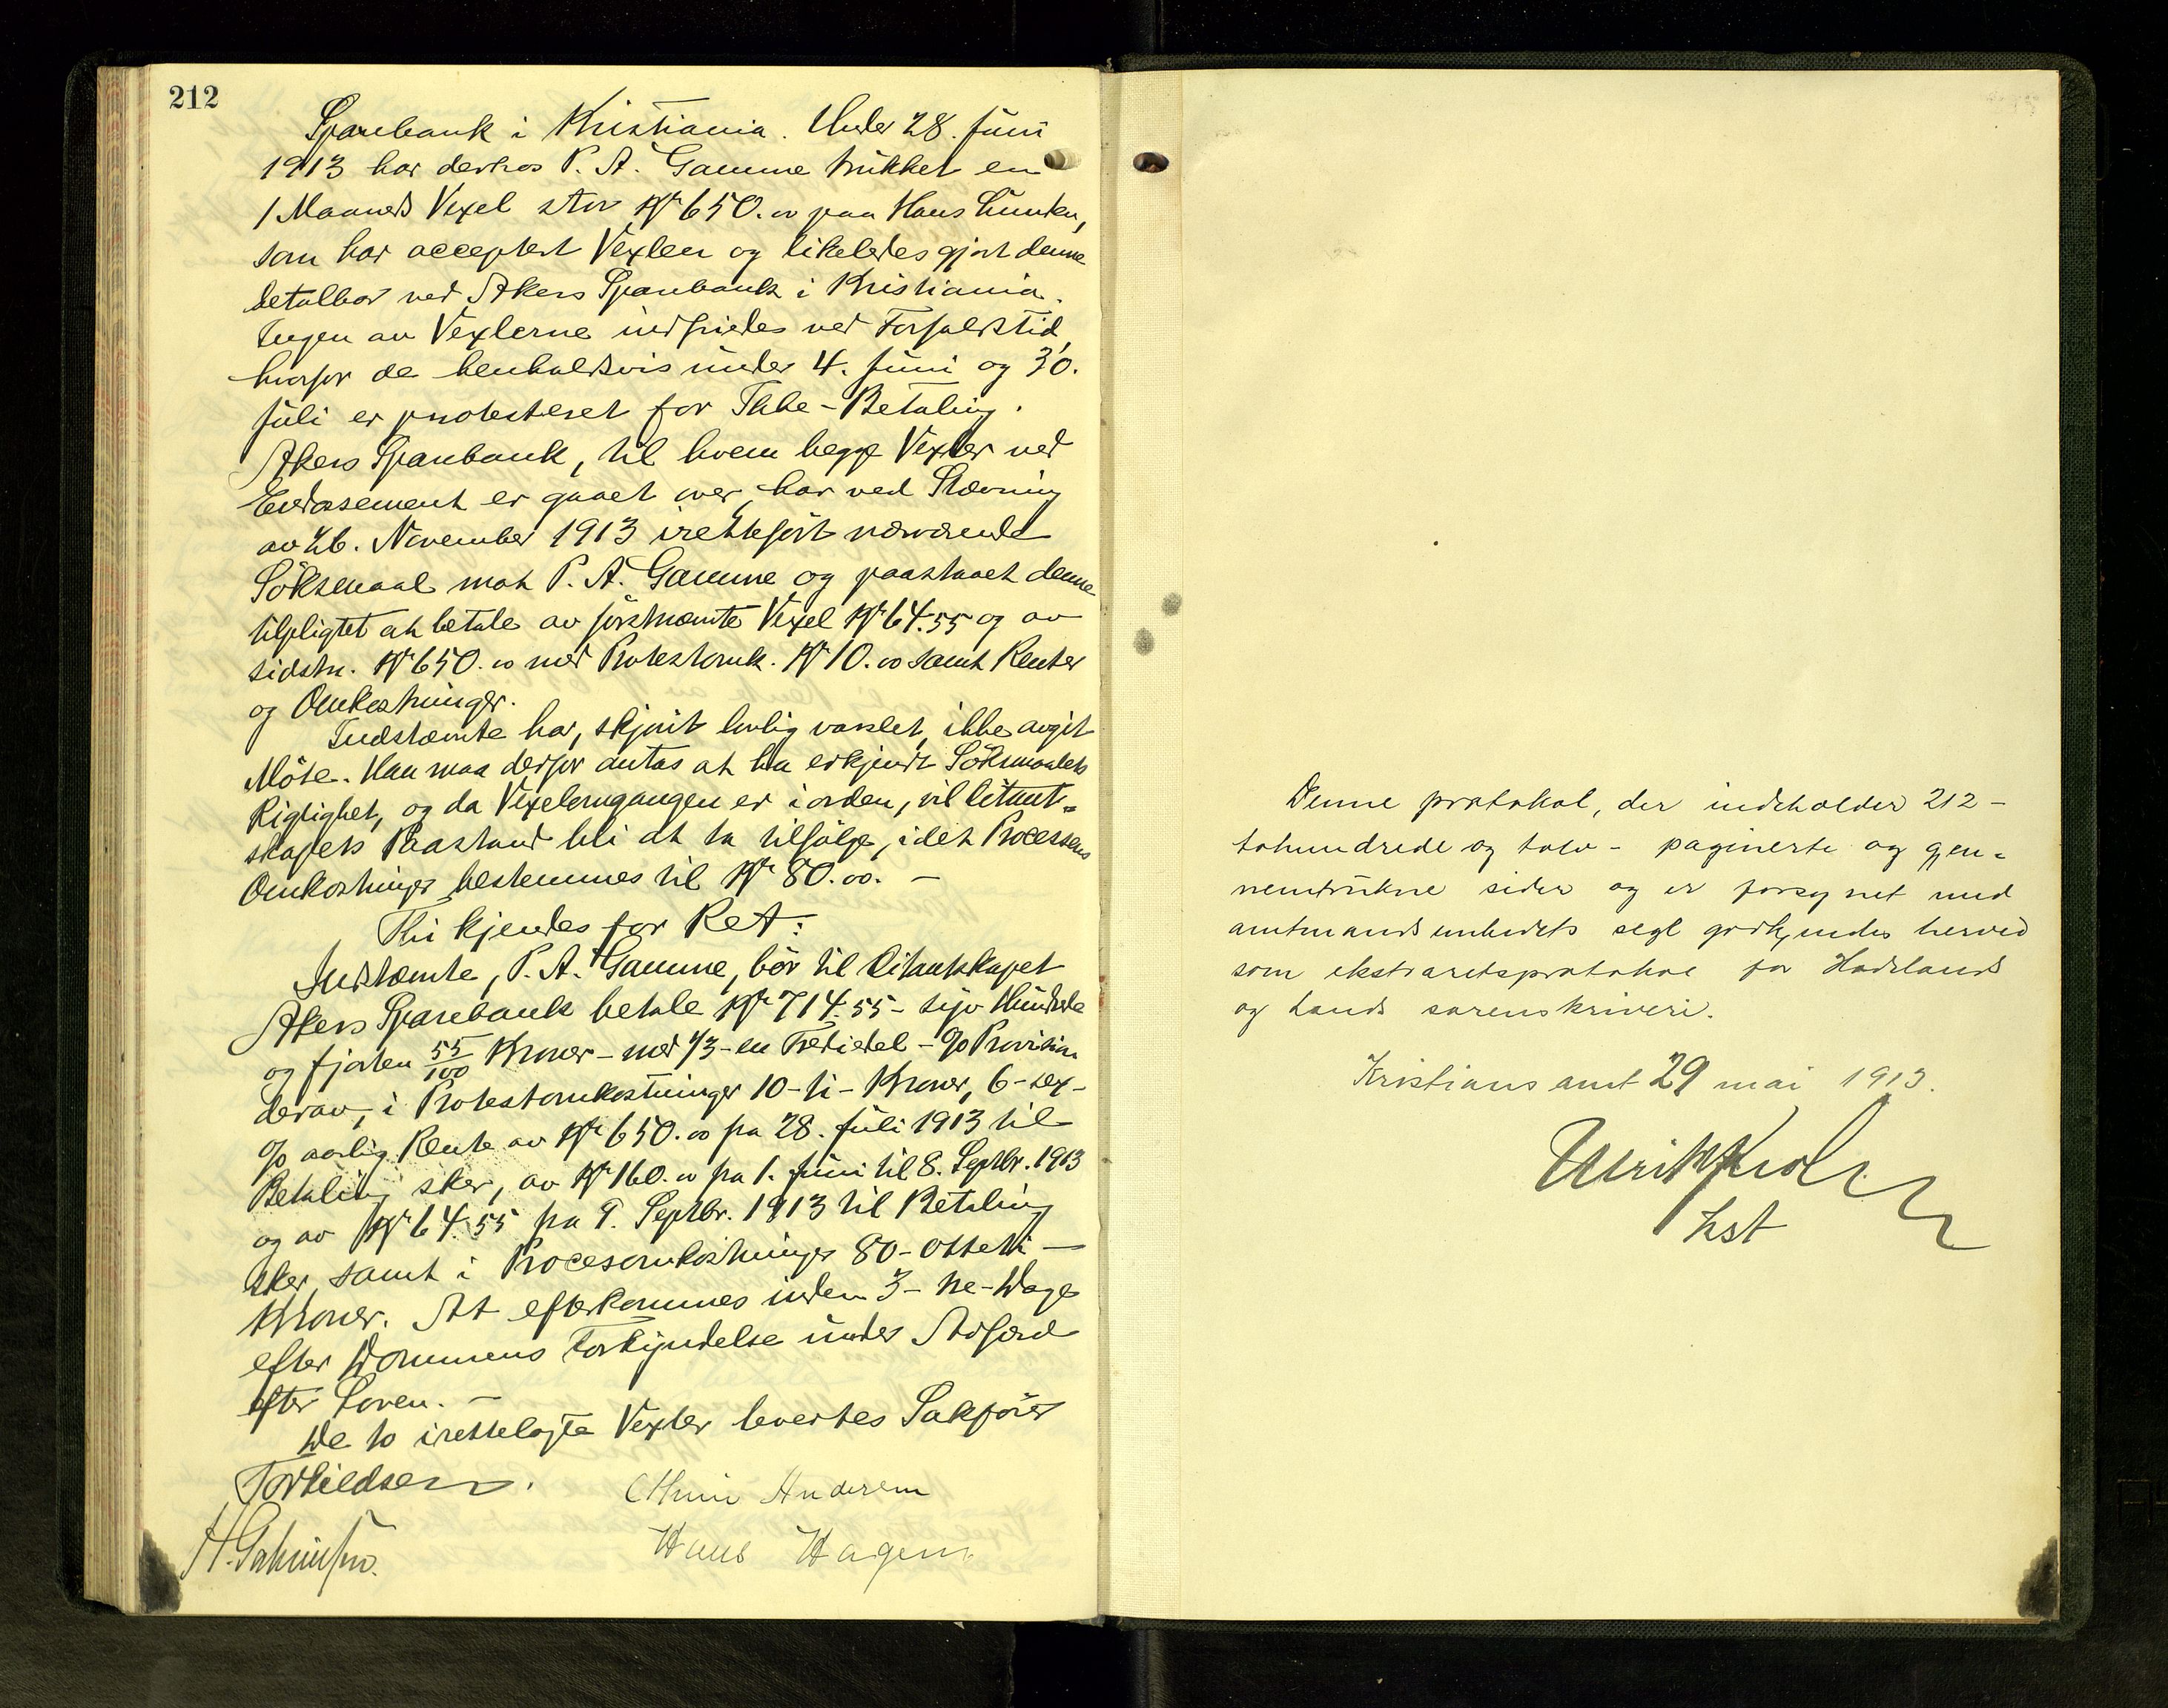 212
Sparebank i Kristiania. Under 28. Juni
1913 har derhos P. A. Gamme trukket en
1 Maaneds Vexel stor Kr 650.00 paa Hans Lunder,
som har acceptert Vexlen og likeledes gjort denne
betalbar ved Akers Sparebank i Kristiania.
Ingen av Vexlerne indfriedes ved Forfaldstid,
hvorfor de henholdsvis under 4. Juni og 30.
Juli er protesteret for Ikke-Betaling.
Akers Sparebank, til hvem begge Vexler ved
Endossement er gaaet over, har ved Stævning
av 26. November 1913 iretteført nærværende
Söksmaal mot P. A. Gamme og paastaaet denne
tilpligtet at betale av förstnævnte Vexel Kr 64.55 og av
sidstn. Kr 650.00 med Protestomk. Kr 10.00 samt Renter
og Omkostninger.
Indstævnte har, skjönt lovlig varslet, ikke avgit
Möte. Han maa derfor antas at ha erkjendt Söksmaalets
Rigtighet, og da Vexelomgangen er i orden, vil Citant-
skapets Paastand bli at ta tilfölge, idet Processens
Omkostninger bestemmes til Kr 80.00. –
Thi kjendes for Ret:
Indstævnte, P. A. Gamme, bör til Citantskapet
Akers Sparebank betale Kr 714.55 - syv Hundrede
og fjorten 55/100 Kroner - med 1/3 - en Trediedel - % Provision
derav, i Protestomkostninger 10 - ti - Kroner, 6 - sex -
% aarlig Rente av Kr 650.00 fra 28. Juli 1913 til
Betaling sker, av Kr 160.00 fra 1. Juni til 8. Septbr. 1913
og av Kr 64.55 fra 9. Septbr. 1913 til Betaling
sker samt i Procesomkostninger 80 - Otteti -
Kroner. At efterkommes inden 3 - tre - Dage
efter Dommens Forkyndelse under Adfærd
efter Loven. –
De to irettelagte Vexler levertes Sakförer
Torkildsen.
Andersen
Hans Hagen
Denne protokol, der indeholder 212 -
tohundrede og tolv - paginerte og gjen-
nemtrukne sider og er forsynet med
amtmandsembedets segl godkjendes herved
som ekstraretsprotokol for Hadeland
og Lands sorenskriveri.
Kristians amt 29 mai 1913.
kst